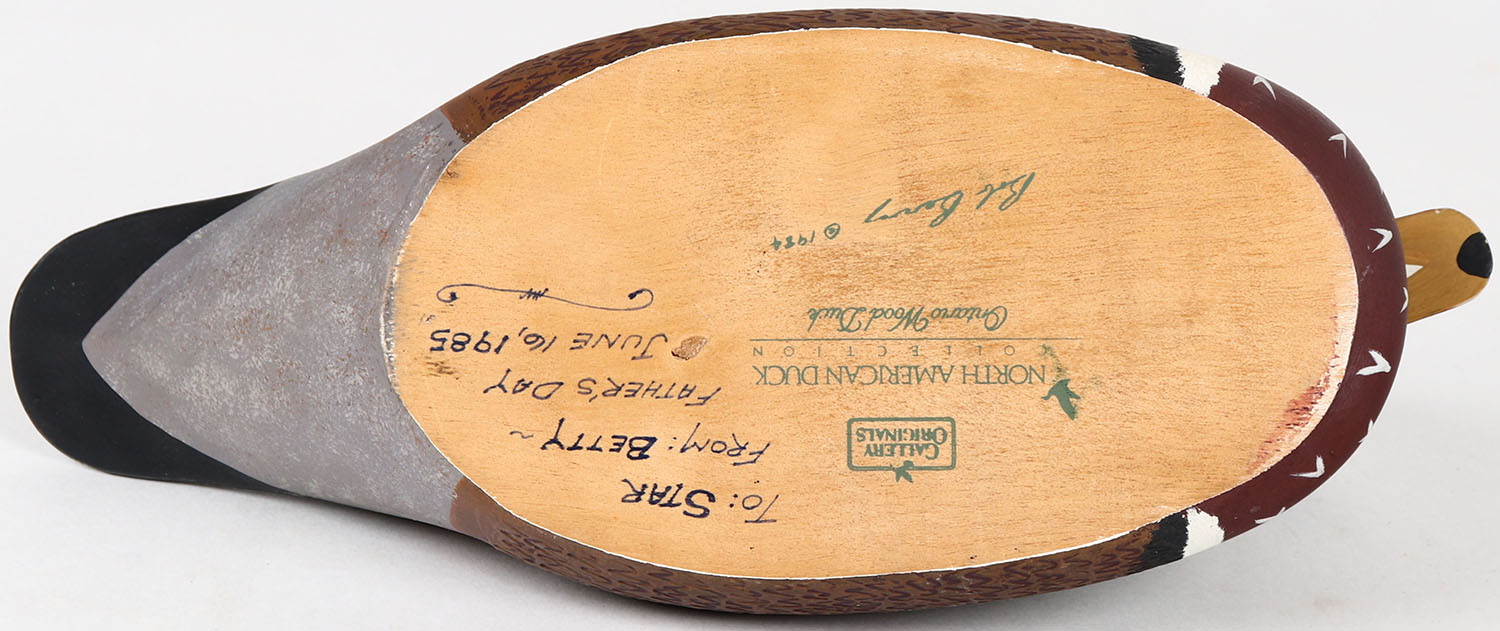 To: STAR
FROM: BETTY ~
FATHER'S DAY
JUNE 16, 1985
GALLERY
ORIGINALS
NORTH AMERICAN DUCK
OLLECTION
Ontario Wood Duck
© 1984
Bob Berry